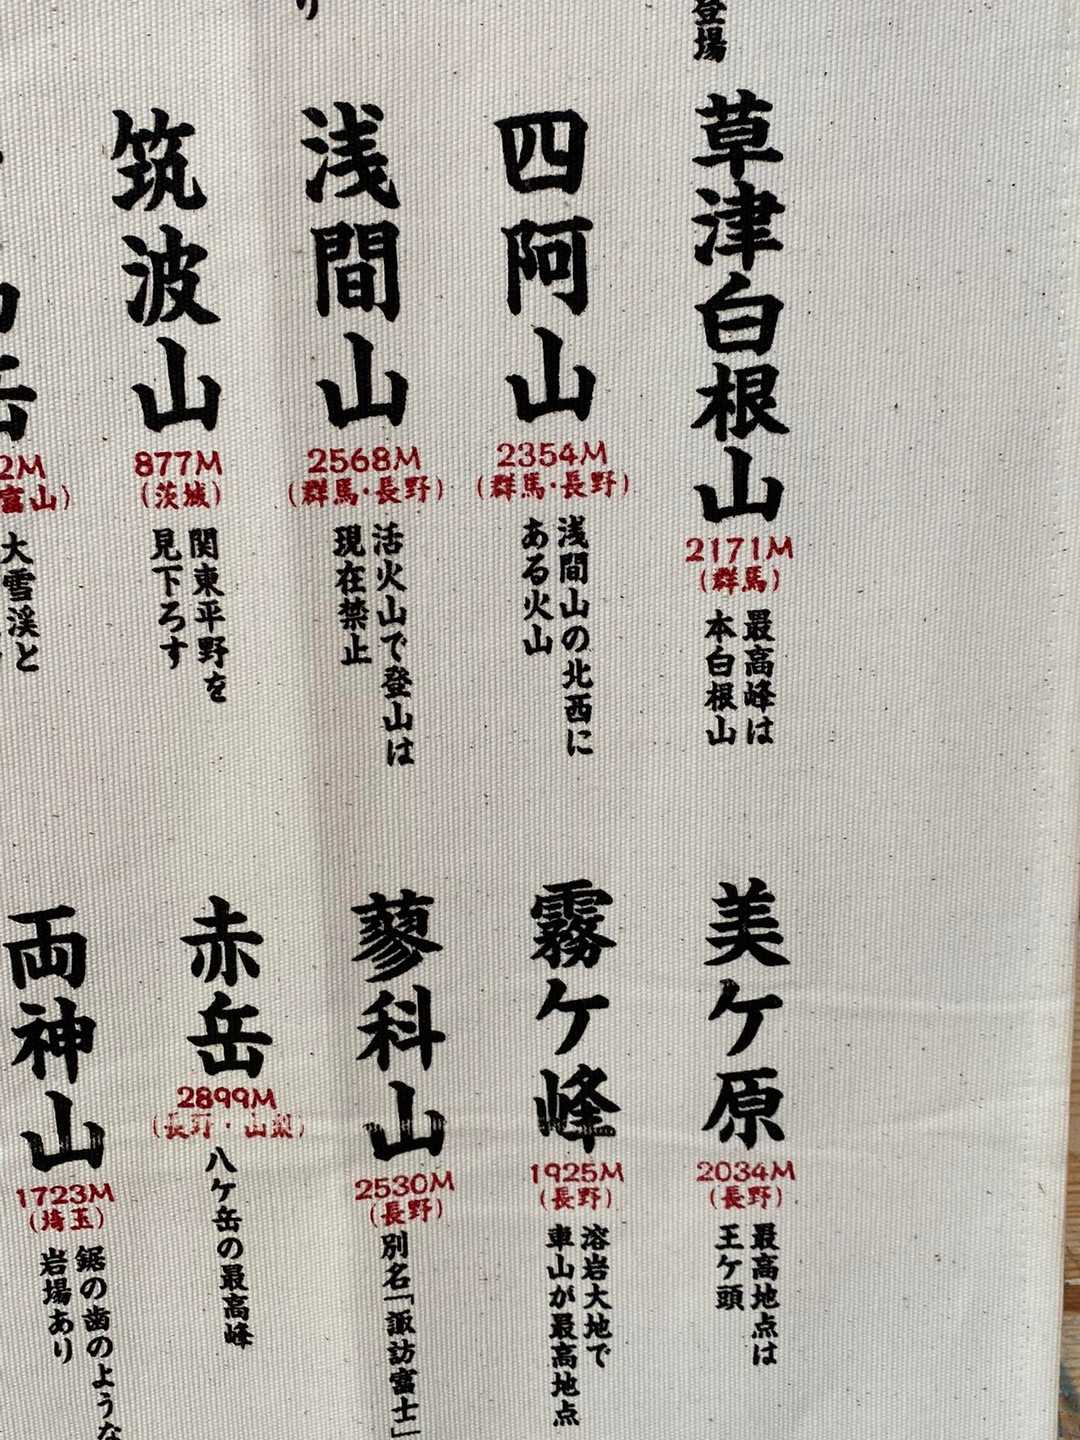 り
登場
草津白根山
2171M
(群馬)
最高峰は
本白根山
四阿山
2354M
(群馬・長野)
浅間山の北西に
ある火山
浅間山
2568M
(群馬・長野)
活火山で登山は
現在禁止
筑波山
877M
(茨城)
関東平野を
見下ろす
岳
2M
富山)
大雪渓と
美ケ原
2034M
(長野)
最高地点は
王ケ頭
霧ケ峰
1925M
(長野)
溶岩大地で
車山が最高地点
蓼科山
2530M
(長野)
別名「諏訪富士」
赤岳
2899M
(長野・山梨)
八ケ岳の最高峰
両神山
1723M
(埼玉)
鋸の歯のような
岩場あり